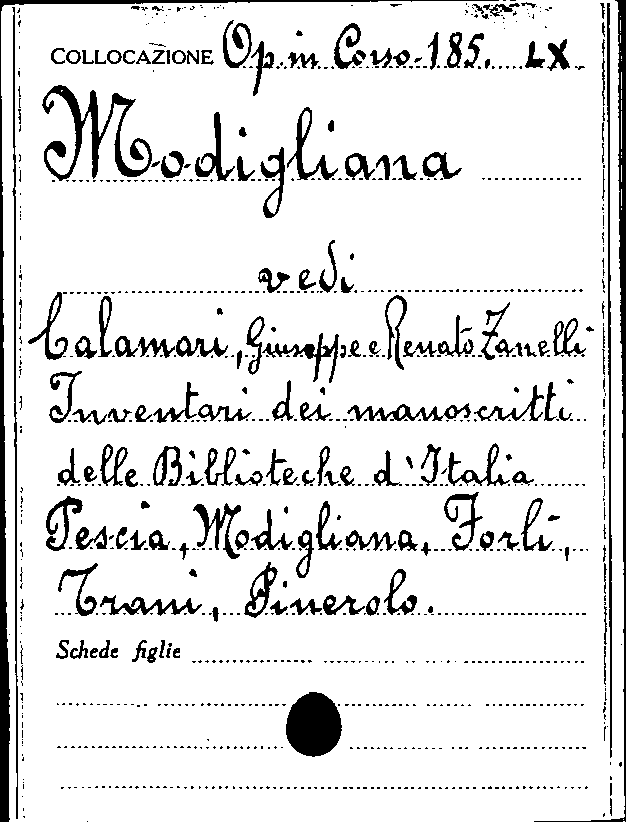 COLLOCAZIONE Op. in Corso. 185. LX.
Modigliana
vedi
Calamari, Giuseppe e Renato Zanelli
Inventari dei manoscritti
delle Biblioteche d'Italia
Pescia, Modigliana, Forlì,
Trani, Pinerolo.
Schede figlie